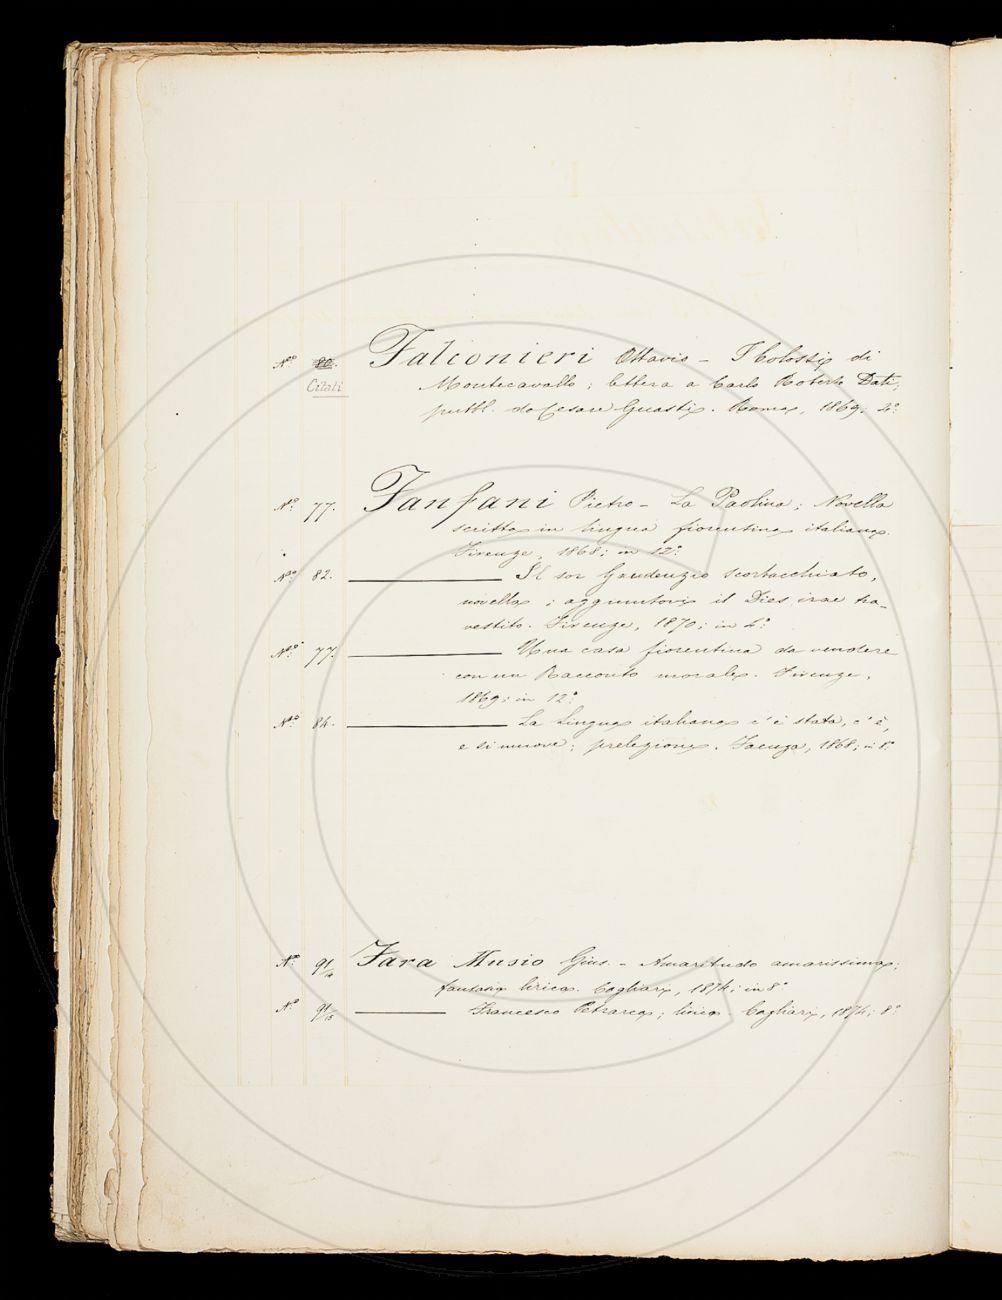 N.º 80. Falconieri Ottavio - I Colossi di
Citati Montecavallo; lettera a Carlo Roberto Dati,
pubbl. da Cesare Guasti. Roma, 1869. 4º
N.º 77. Fanfani Pietro - La Paolina; Novella
scritta in lingua fiorentina italiana.
Firenze, 1868; in 12º.
N.º 82. Il sor Gaudenzio scortacchiato,
novella; aggiuntovi il Dies irae tra-
vestito. Firenze, 1870; in 4º.
N.º 77. Una casa fiorentina da vendere
con un Racconto morale. Firenze,
1869; in 12º.
N.º 84. La Lingua italiana c'è stata, c'è,
e si muove; prelezione. Faenza, 1868; in 8º.
N.º 91/14 Fara Musio Gius. - Amaritudo amarissima;
fantasia lirica. Cagliari, 1874; in 8º
N.º 91/15 Francesco Petrarca; lirica. Cagliari, 1874; 8º